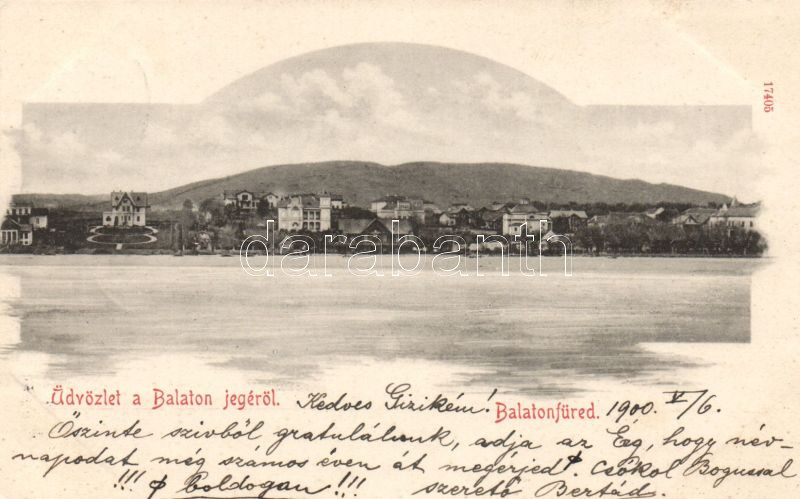 17405
darabanth
Üdvözlet a Balaton jegéröl. Kedves Gizikém! Balatonfüred. 1900. V/6.
Őszinte szivből gratulálunk, adja az Ég, hogy név-
napodat még számos éven át megérjed. Csókol Bogussal
!!! boldogan !!! szerető Bertád.